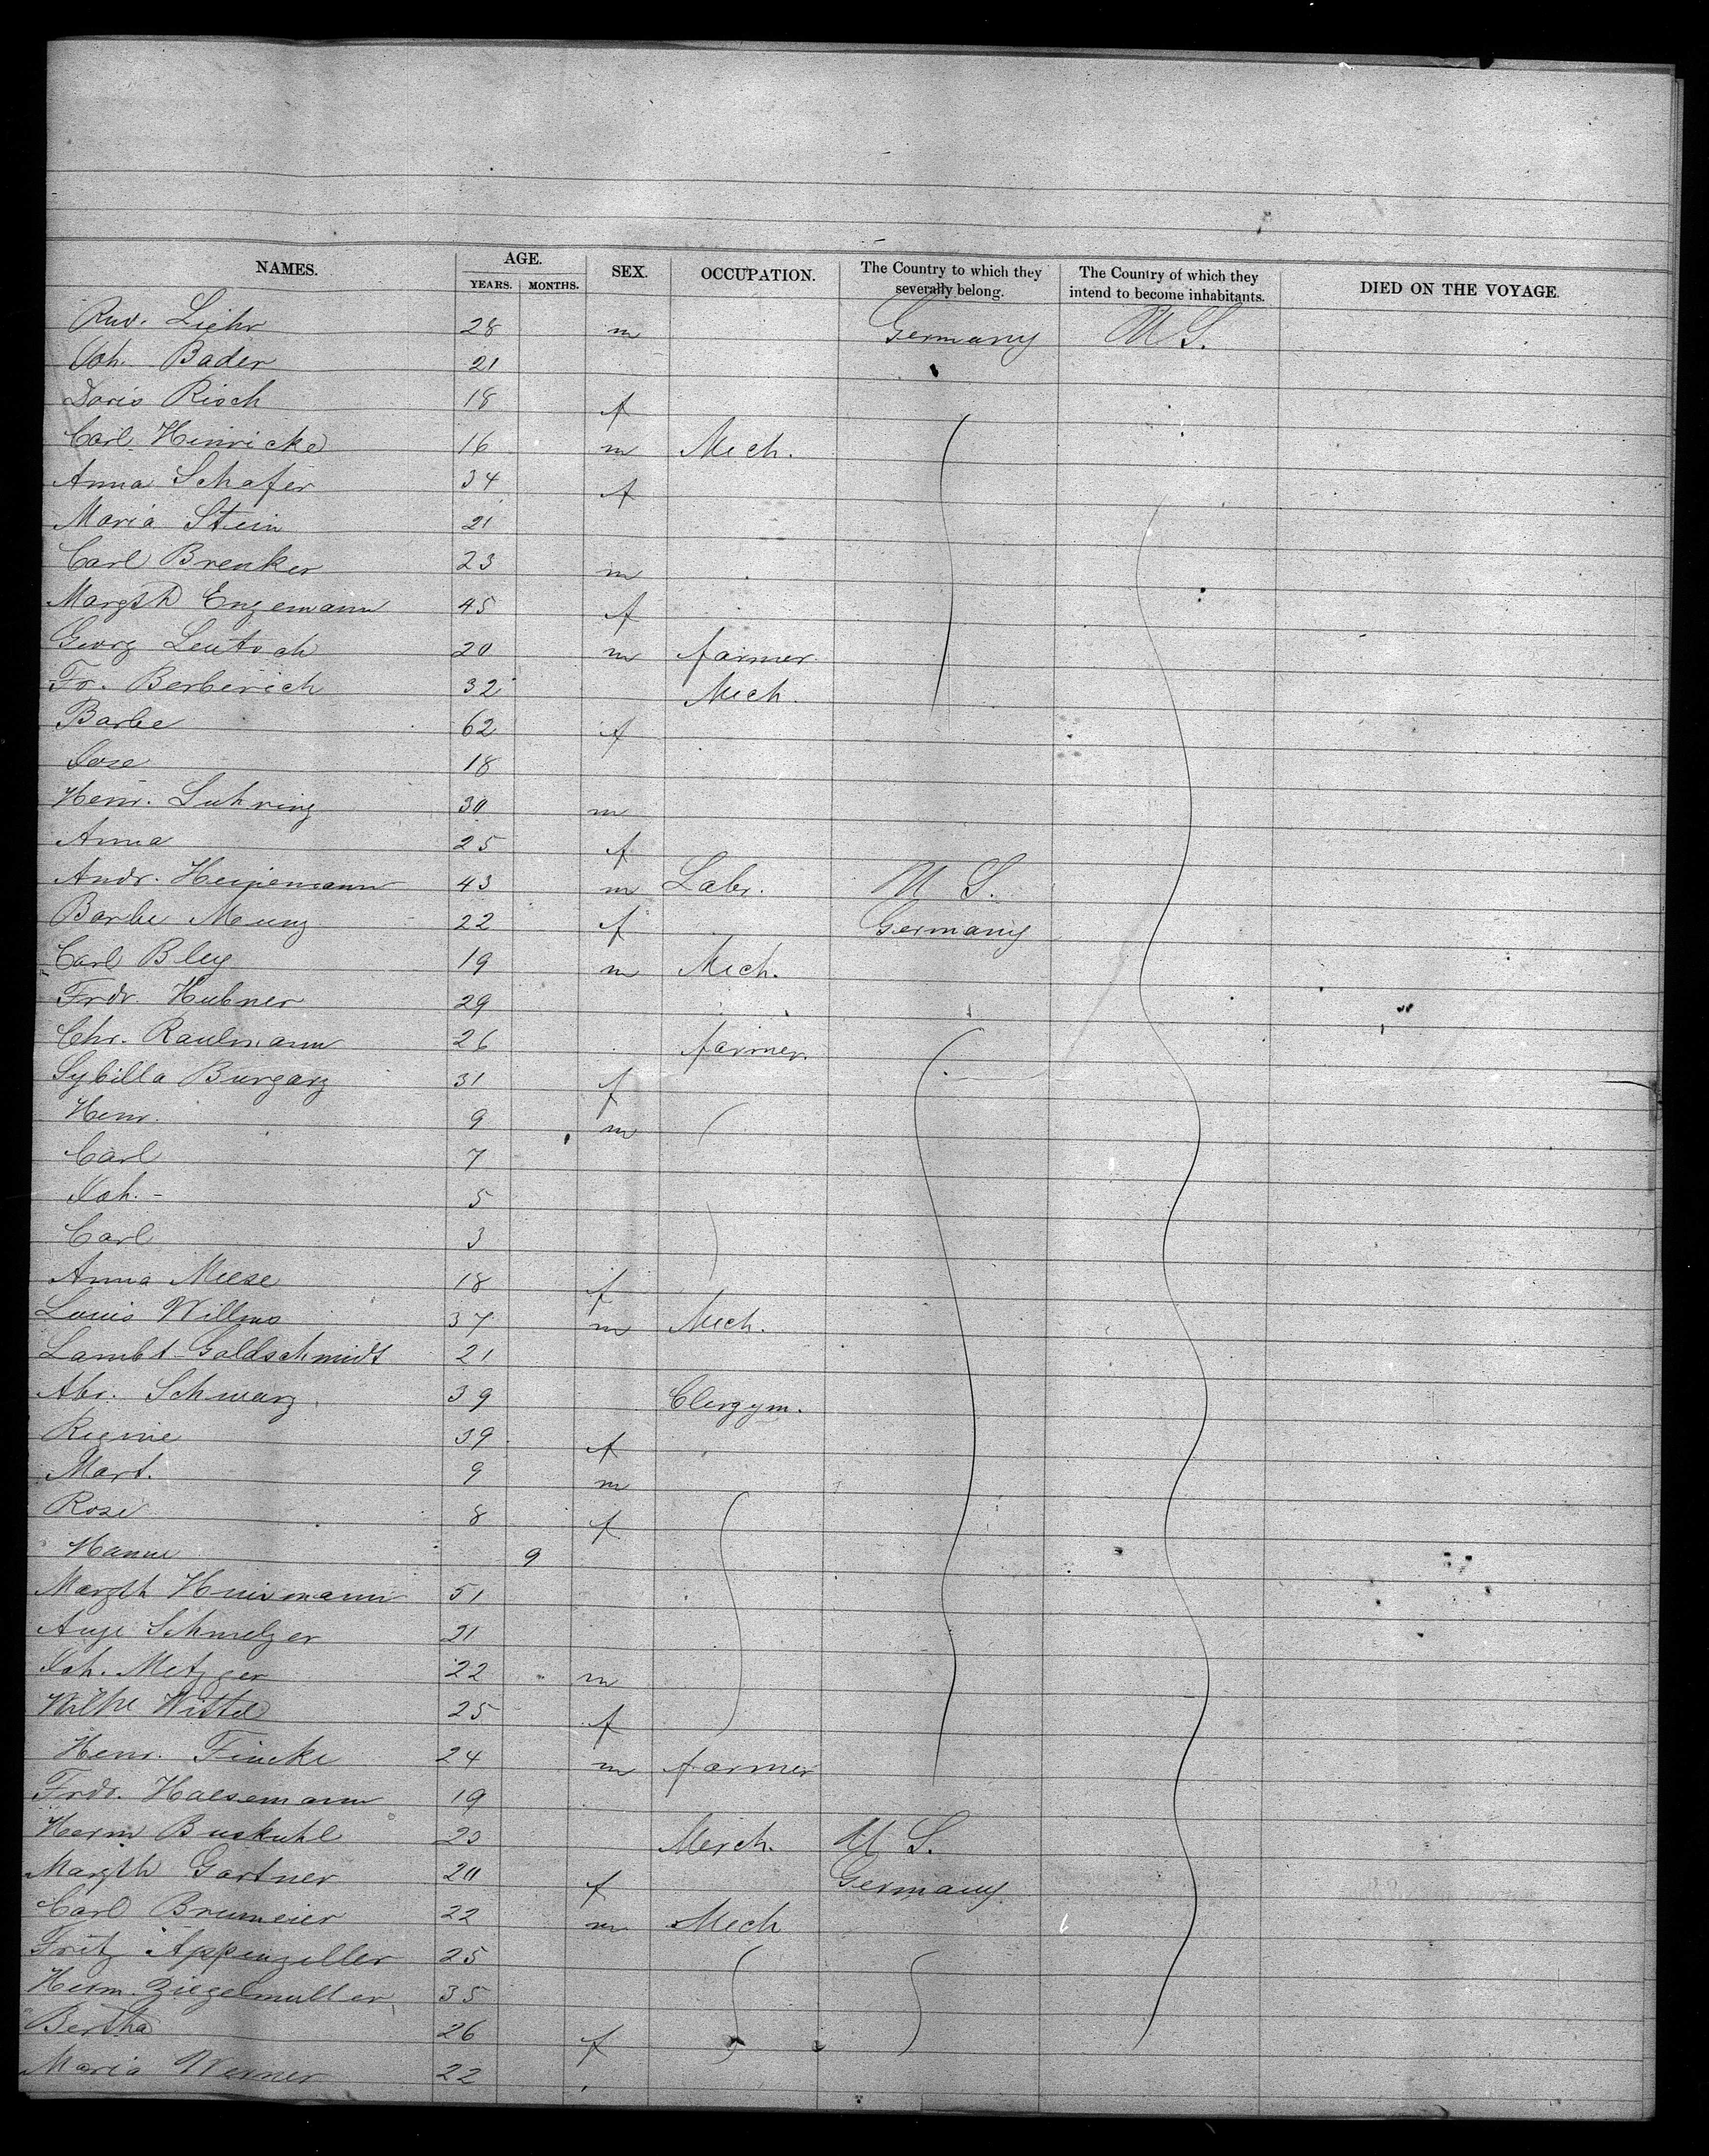 NAMES. AGE. SEX. OCCUPATION. The Country to which they severally belong. The Country of which they intend to become inhabitants. DIED ON THE VOYAGE.
YEARS. MONTHS.
Rud. Liehr 28 m Germany U S.
Joh. Bader 21
Doris Risch 18 f
Carl Hinricke 16 m Mech.
Anna Schafer 34 f
Maria Stein 21
Carl Brenker 23 m
Margth Engemann 45 f
Georg Leutsch 20 m farmer
Fr. Berberich 32 Mech.
Barbe 62 f
Jose 18
Henr. Luhring 30 m
Anna 25 f
Andr. Heinemann 43 m Labr. U S.
Barbe Munz 22 f Germany
Carl Bley 19 m Mech.
Frdr. Hubner 29
Chr. Raulmann 26 farmer
Sybilla Burgarz 31 f
Henr. 9 m
Carl 7
Joh. - 5
Carl 3
Anna Meese 18 f
Louis Willms 37 m Mech.
Lambt Goldschmidt 21
Abr. Schwarz 39 Clergym.
Regine 39 f
Mart. 9 m
Rose 8 f
Hanne 9
Margth 51
Schmelzer 21
Joh. Metzger 22 m
Wilhe Wittel 25 f
Henr. Fincke 24 m farmer
Frdr. Halsemann 19
Herm Buskuhl 20 Merch. U S.
Margth Gartner 20 f Germany
Carl Brumeier 22 m Mech
Fritz Appenzeller 25
Herm. Ziegelmuller 35
Bertha 26 f
Maria Werner 22